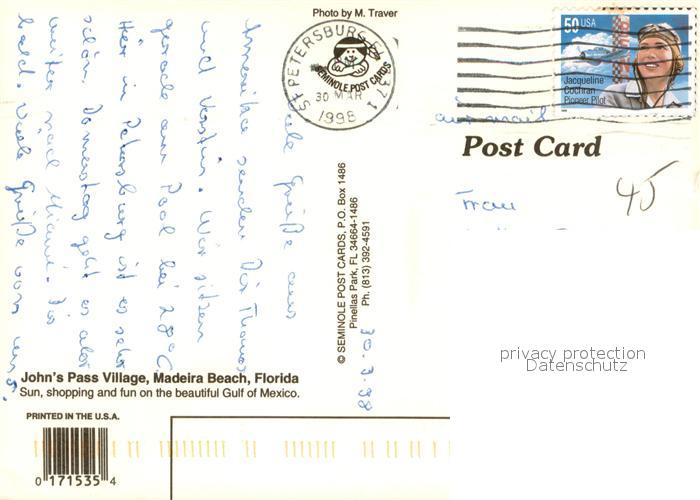 Photo by M. Traver
ST. PETERSBURG FL 337 1
SEMINOLE POST CARDS
30 MAR
1998
50 USA
Jacqueline
Cochran
Pioneer Pilot
air mail
Post Card
45
Frau
privacy protection
Datenschutz
30.3.98
Viele Grüße aus
Amerika senden Dir Thomas
und Kerstin. Wir sitzen
gerade am Pool bei 28°C.
Hier in Petersburg ist es sehr
schön. Donnerstag geht es aber
weiter nach Miami. Bis
bald. Viele Grüße von uns.
© SEMINOLE POST CARDS, P.O. Box 1486
Pinellas Park, FL 34664-1486
Ph. (813) 392-4591
John's Pass Village, Madeira Beach, Florida
Sun, shopping and fun on the beautiful Gulf of Mexico.
PRINTED IN THE U.S.A.
0 171535 4